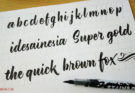 abcdefghijklmnop
idesainesia Super gold
the quick brown fox